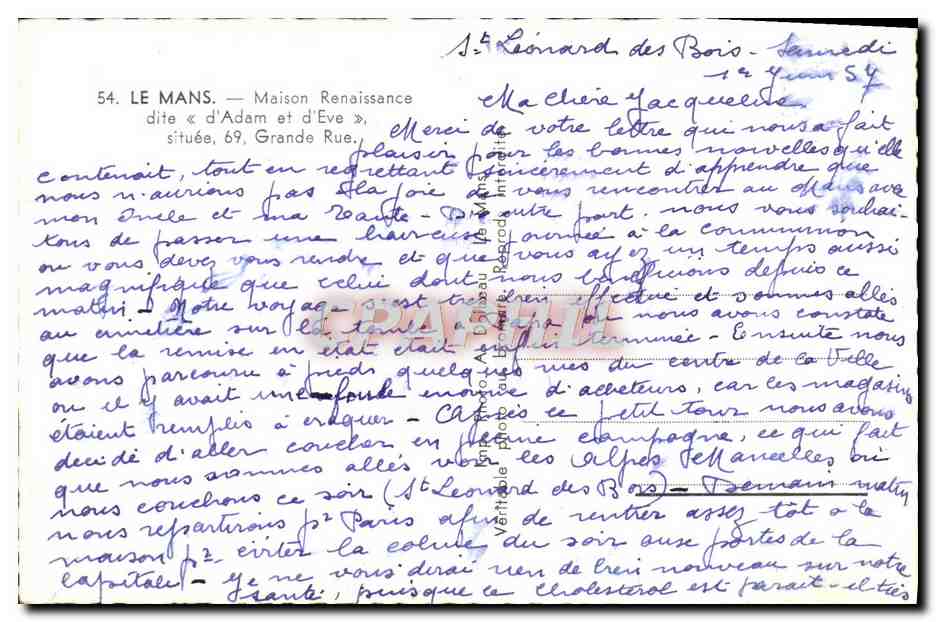 St Léonard des Bois - Samedi
1er Juin 57
54. LE MANS. — Maison Renaissance
dite « d'Adam et d'Eve »,
située, 69, Grande Rue.
Ma Chère Jacqueline
Merci de votre lettre qui nous a fait
plaisir pour les bonnes nouvelles qu'elle
contenait, tout en regrettant sincèrement d'apprendre que
nous n'aurions pas la joie de vous rencontrer au Mans avec
mon Oncle et ma Tante - D'autre part, nous vous souhai-
tons de passer une heureuse journée à la communion
où vous devez vous rendre et que vous ayez un temps aussi
magnifique que celui dont nous bénéficions depuis ce
matin - Notre voyage s'est très bien effectué et sommes allés
au cimetière sur la tombe à Papa où nous avons constaté
que la remise en état était enfin terminée - Ensuite nous
avons parcouru à pieds quelques rues du centre de la Ville
où il y avait une foule énorme d'acheteurs, car les magasins
étaient remplis à craquer - Après ce petit tour nous avons
décidé d'aller coucher en pleine campagne, ce qui fait
que nous sommes allés voir les Alpes Mancelles où
nous couchons ce soir (St Léonard des Bois) - Demain matin
nous repartirons pr Paris afin de rentrer assez tôt à la
maison pr éviter la cohue du soir aux portes de la
Capitale - Je ne vous dirai rien de bien nouveau sur notre
santé, puisque ce cholestérol est parait-il très
Imp. Photo. A. Dubeau Le Mans
Véritable photo au bromure Reprod. interdite
CPARAMA